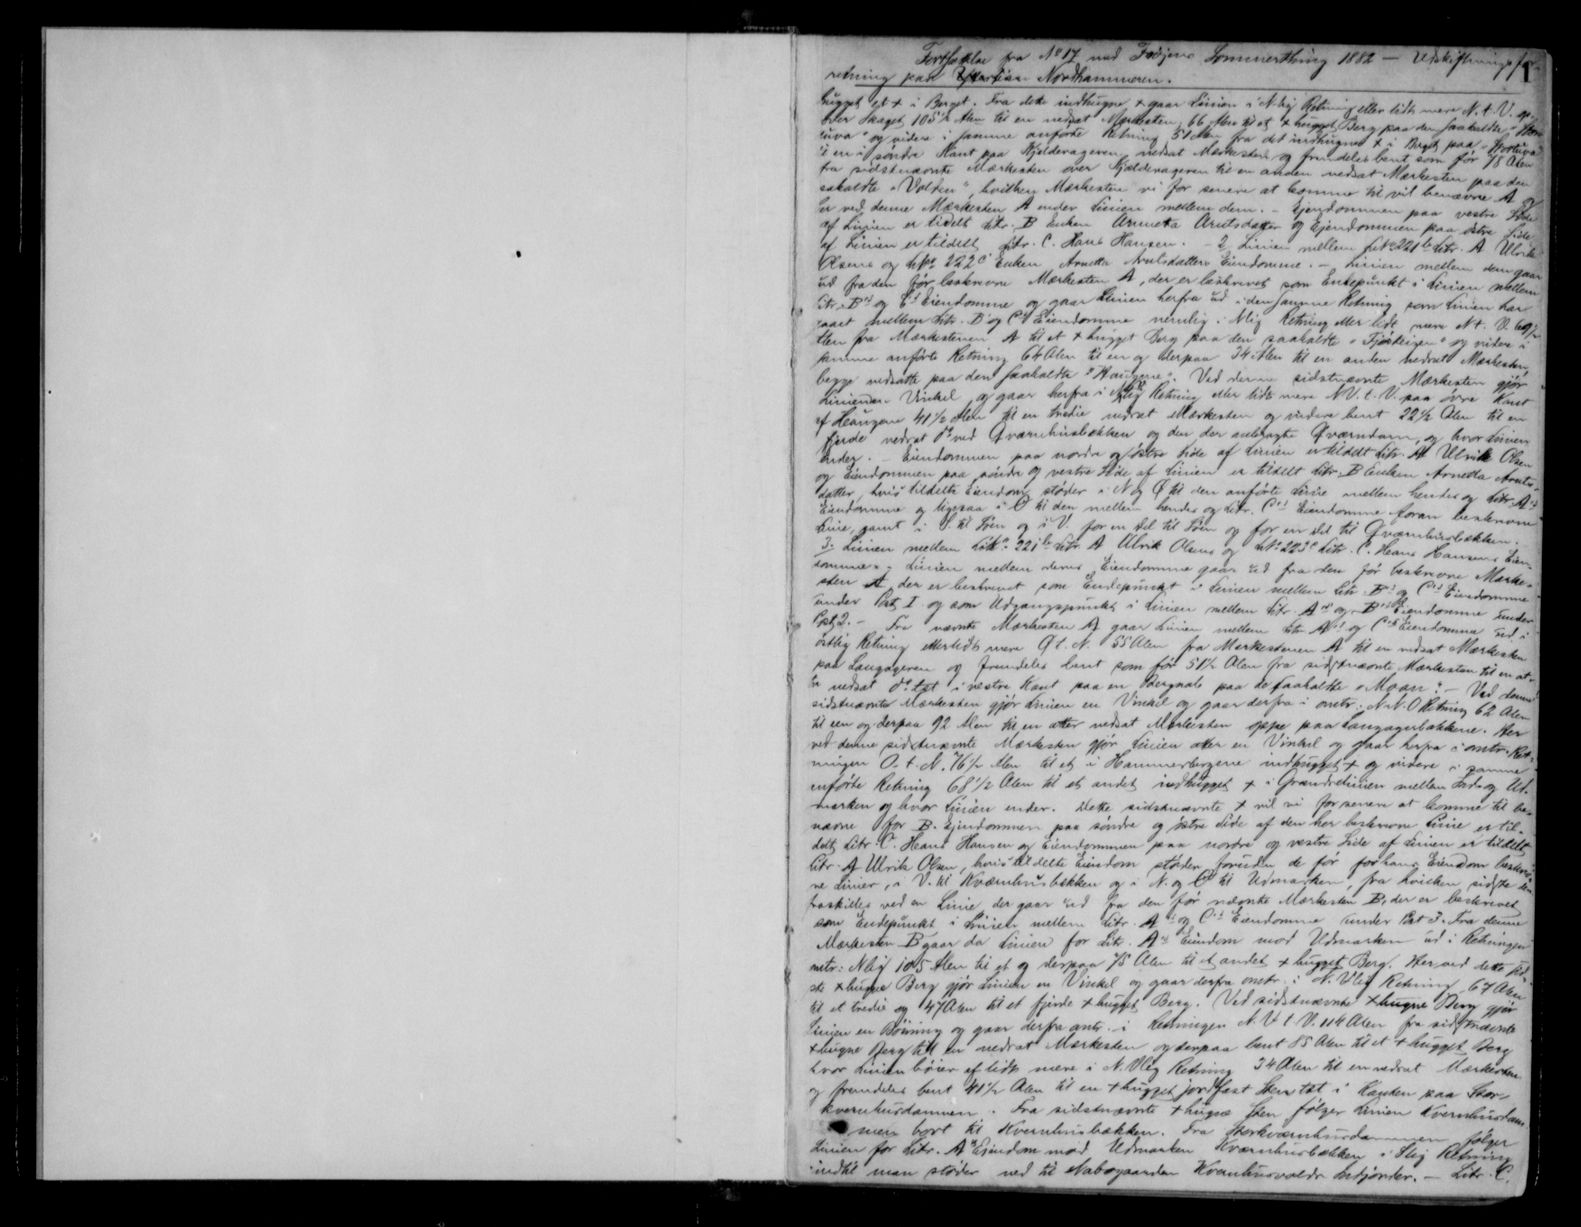 Fortsættelse fra No 17 ved Frøjens Sommerthing 1882 — Udskiftningsfor-
1
retning paa Nordhammeren.
hugget et + i Berget. Fra dette indhugne + gaar Linien i Nlig Retning eller lidt mere N. t. V. op-
efter Skaget 105½ Alen til en nedsat Mærkesten, 66 Alen til et + hugget Berg paa den saakaldte
og videre i samme anførte Retning 51 Alen fra det indhugne + i Berget paa
til en i søndre Kant paa Kjelderageren nedsat Mærkesten og fremdeles bent som før 78 Alen
fra sidstnævnte Mærkesten over Kjelderageren til en anden nedsat Mærkesten paa den
sakaldte "Volden", hvilken Mærkesten vi for senere at komme til vil benævne A og
er ved denne Mærkesten A ender Linien mellem dem. – Ejendommen paa vestre Side
af Linien er tildelt Litr. B Enken Arnetta Arntsdatter og Ejendommen paa østre Side
af Linien er tildelt Litr. C. Hans Hansen. – 2 Linien mellem LNo 221b Litr. A Ulrik
Olsens og LNo 222c Enken Arnetta Arntsdatters Eiendomme. – Linien mellem dem gaar
ud fra den før beskrevne Mærkesten A, der er beskrevet som Endepunkt i Linien mellem
Litr. B's og C's Eiendomme og gaar Linien herfra ud i den samme Retning som Linien har
gaaet mellem Litr. B's og C's Eiendomme nemlig i Nlig Retning eller lidt mere N t. V. 69½
Alen fra Mærkestenen A til et + hugget Berg paa den saakaldte og videre i
samme anførte Retning 64 Alen til en og derpaa 34 Alen til en anden nedsat Mærkesten,
begge nedsatte paa den saakaldte "Haugene". Ved denne sidstnævnte Mærkesten gjør
Linien en Vinkel og gaar herfra i Retning eller lidt mere NV. t. V. paa øvre Kant
af Haugene 41½ Alen til en tredie nedsat Mærkesten og videre bent 22½ Alen til en
fjerde nedsat do ved Qværnhusbækken og den der anbragte Qværndam, og hvor Linien
ender. – Eiendommen paa nordre og østre Side af Linien er tildelt Litr. A Ulrik Olsen
og Eiendommen paa søndre og vestre Side af Linien er tildelt Litr. B Enken Arnetta Arnts-
datter, hvis tildelte Eiendom støder i N og Ø til den anførte Linie mellem hendes og Litr. A's
Eiendomme og ligesaa i Ø til den mellem hendes og Litr. C's Eiendomme foran beskrevne
Linie, samt i S. til Søen og i V. for en Del til Søen og for en Del til Qværnhusbækken.
3. Linien mellem LNo 221b Litr. A Ulrik Olsens og LNo 223c Litr. C. Hans Hansens Eien-
domme. – Linien mellem deres Eiendomme gaar ud fra den før beskrevne Mærke-
sten A der er beskrevet som Endepunkt i Linien mellem Litr. B's og C's Eiendomme
under Post I og som Udgangspunkt i Linien mellem Litr. A's og B's Eiendomme under
Post 2. – Fra nævnte Mærkesten A gaar Linien mellem Litr. A's og C's Eiendomme ud i
østlig Retning eller lidt mere Ø t. N. 55 Alen fra Mærkestenen A til en nedsat Mærkesten
paa Langageren og fremdeles bent som før 51½ Alen fra sidstnævnte Mærkesten til en at-
ter nedsat do tæt i vestre Kant paa en Bergnab paa de saakaldte "Moan". – Ved denne
sidstnævnte Mærkesten gjør Linien en Vinkel og gaar derfra i omtr. N.N.O Retning 62 Alen
til een og derpaa 92 Alen til en atter nedsat Mærkesten oppe paa Langagerbakkene. Her
ved denne sidstnævnte Mærkesten gjør Linien atter en Vinkel og gaar herfra i omtr. Ret-
ningen O. t. N. 76½ Alen til et i Hammerbergene indhugget + og videre i samme
anførte Retning 68½ Alen til et andet indhugget + i Grændselinien mellem Ind- og Ud-
marken og hvor Linien ender. Dette sidstnævnte + vil vi for senere at komme til be-
nævne for B. Ejendommen paa søndre og østre Side af den her beskrevne Linie er til-
delt Litr. C. Hans Hansen og Eiendommen paa nordre og vestre Side af Linien er tildelt
Litr. A Ulrik Olsen, hvis tildelte Eiendom støder foruden de før for hans Eiendom beskrev-
ne Linier, i V. til Kværnhusbækken og i N. og Ø til Udmarken, fra hvilken sidste den
fraskilles ved en Linie der gaar ud fra den før nævnte Mærkesten B, der er beskrevet
som Endepunkt i Linien mellem Litr. A's og C's Eiendomme under Post 3. Fra denne
Mærkesten B gaar da Linien for Litr. A's Eiendom mod Udmarken ud i Retningen
omtr: Nlig 105 Alen til et og derpaa 75 Alen til et andet + hugget Berg. Her ved dette sid-
ste + hugne Berg gjør Linien en Vinkel og gaar derfra omtr. i N. Vlig Retning 67 Alen
til et tredie og 47 Alen til et fjerde + hugget Berg. Ved sidstnævnte + hugne Berg gjør
Linien en Bøining og gaar derfra omtr. i Retningen N. V. t. V. 114 Alen fra sidstnævnte
+ hugne Berg til en nedsat Mærkesten og derpaa bent 85 Alen til et + hugget Berg
hvor Linien bøier af lidt mere i N. Vlig Retning 34 Alen til en nedsat Mærkesten
og fremdeles bent 41½ Alen til en + hugget jordfast Sten tæt i Kanten paa Stor-
kvernhusdammen. Fra sidstnævnte + hugne Sten følger Linien Kvernhusdam-
men bort til Kvernhusbækken. Fra Storkværnhusdammen følger
Linien for Litr. A's Eiendom mod Udmarken Kværnhusbækken i Slig Retning
indtil man støder ned til Nabogaarden Kvernhusvolds Indjorder. – Litr. C.